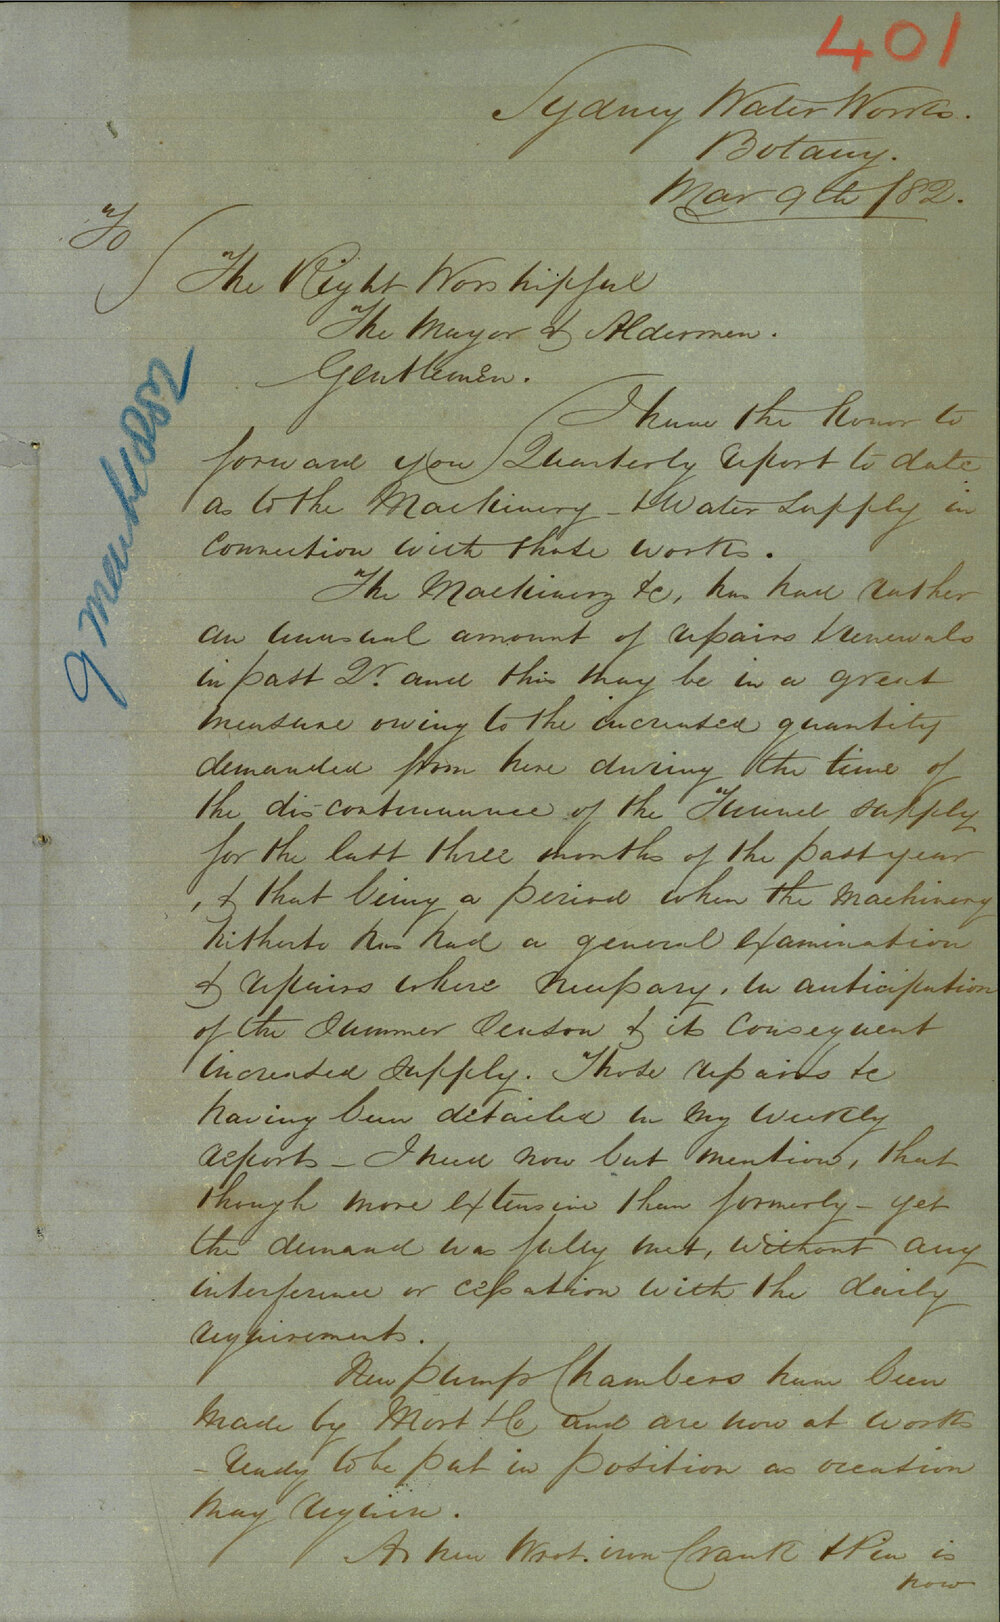 401
Sydney Water Works.
Botany.
Mar 9th /82.
To
The Right Worshipful
The Mayor & Aldermen.
Gentlemen.
9 March 1882
I have the honor to
forward you Quarterly report to date
as to the Machinery - & Water Supply in
connection with those works.
The Machinery &c, has had rather
an unusual amount of repairs & renewals
in past Qr. and this may be in a great
measure owing to the increased quantity
demanded from here during the time of
the discontinuance of the Tunnel supply
for the last three months of the past year
, & that being a period when the Machinery
hitherto has had a general examination
& repairs where necessary, in anticipation
of the Summer Season & its consequent
increased supply. Those repairs &c
having been detailed in my weekly
reports - I need now but mention, that
though more extensive than formerly - yet
the demand was fully met, without any
interference or cessation with the daily
requirements.
New pump Chambers have been
made by Mort & Co and are now at works
- ready to be put in position as occasion
may require.
A new Wrot. iron Crank & Pin is
now